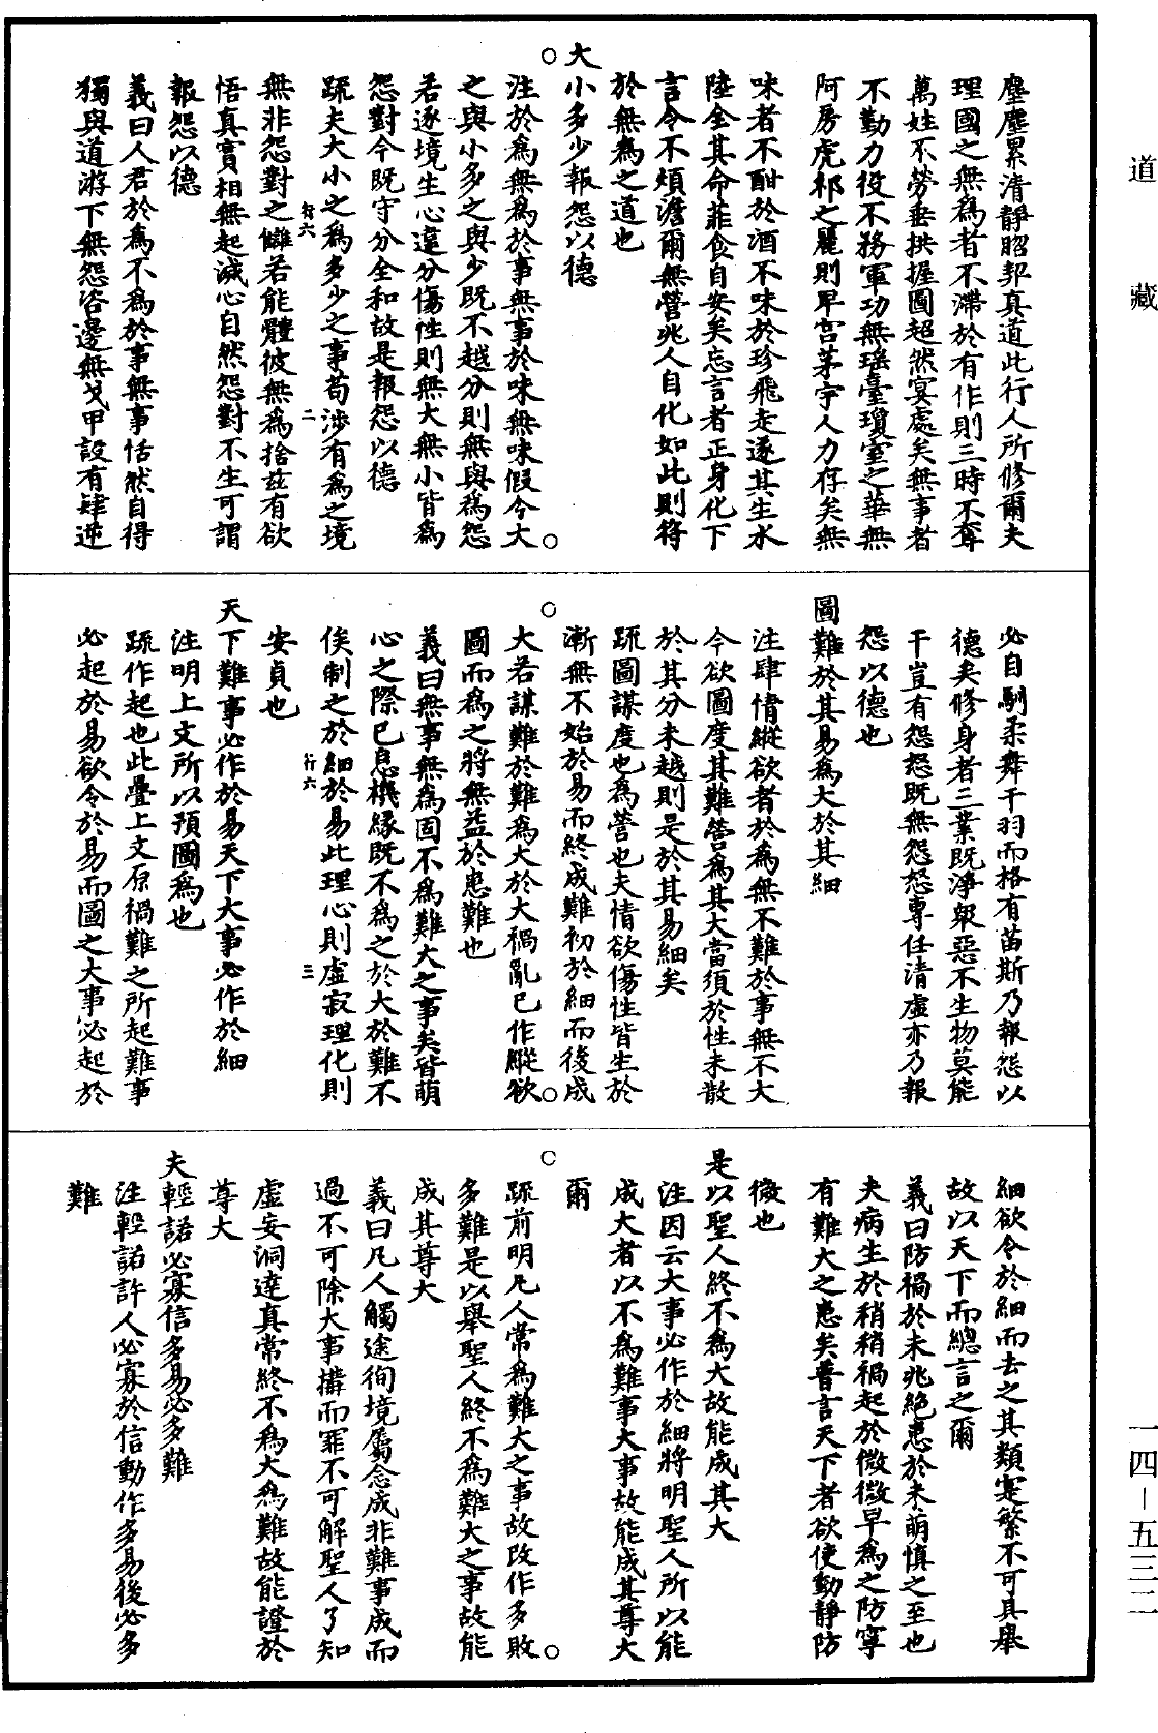 道藏
塵塵累清靜昭邪真道此行人所修爾夫
理國之無為者不滯於有作則三時不奪
萬姓不勞垂拱握圖超然宴處矣無事者
不勤力役不務軍功無瑶臺瓊室之華無
阿房虎祁之麗則早宫茅宇人力存矣無
味者不酣於酒不味於珍飛走遂其生水
陸全其命菲食自安矣忘言者正身化下
言令不煩澹爾無營兆人自化如此則符
於無為之道也
大小多少報怨以德
注於為無為於事無事於味無味假令大
之與小多之與少既不越分則無與為怨
若逐境生心違分傷性則無大無小皆為
怨對今既守分全和故是報怨以德
疏夫大小之為多少之事苟涉有為之境
行六 二
無非怨對之讎若能體彼無為捨兹有欲
悟真實相無起滅心自然怨對不生可謂
報怨以德
義曰人君於為不為於事無事恬然自得
獨與道游下無怨咨邊無戈甲設有肆逆
必自馴柔舞干羽而格有苗斯乃報怨以
德矣修身者三業既淨衆惡不生物莫能
干豈有怨怒既無怨怒專任清虛亦乃報
怨以德也
圖難於其易為大於其細
注肆情縱欲者於為無不難於事無不大
今欲圖度其難營為其大當須於性未散
於其分未越則是於其易細矣
疏圖謀度也為營也夫情欲傷性皆生於
漸無不始於易而終成難初於細而後成
大若謀難於難為大於大禍亂已作縱欲
圖而為之將無益於患難也
義曰無事無為固不為難大之事矣皆萌
心之際已息機緣既不為之於大於難不
俟制之於細於易此理心則虛寂理化則
行六 三
安貞也
天下難事必作於易天下大事必作於細
注明上文所以預圖為也
疏作起也此疊上文原禍難之所起難事
必起於易欲令於易而圖之大事必起於
細欲令於細而去之其類寔繁不可具舉
故以天下而總言之爾
義曰防禍於未兆絕患於未萌慎之至也
夫病生於稍稍禍起於微微早為之防寧
有難大之患矣普言天下者欲使動靜防
微也
是以聖人終不為大故能成其大
注因云大事必作於細將明聖人所以能
成大者以不為難事大事故能成其尊大
爾
疏前明凡人常為難大之事故改作多敗
多難是以舉聖人終不為難大之事故能
成其尊大
義曰凡人觸途徇境屬念成非難事成而
過不可除大事搆而罪不可解聖人了知
虛妄洞達真常終不為大為難故能證於
尊大
夫輕諾必寡信多易必多難
注輕諾許人必寡於信動作多易後必多
難
一四－五三二